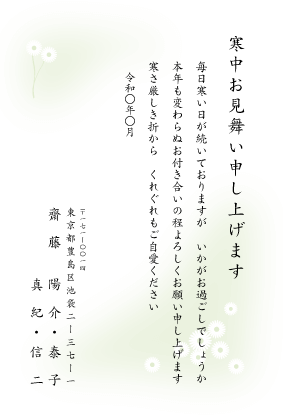 寒中お見舞い申し上げます
毎日寒い日が続いておりますが　いかがお過ごしでしょうか
本年も変わらぬお付き合いの程よろしくお願い申し上げます
寒さ厳しき折から　くれぐれもご自愛ください
令和〇年〇月
〒一七一-〇〇一四
東京都豊島区池袋二ー三七ー一
齋藤　陽介・泰子
真紀・信二